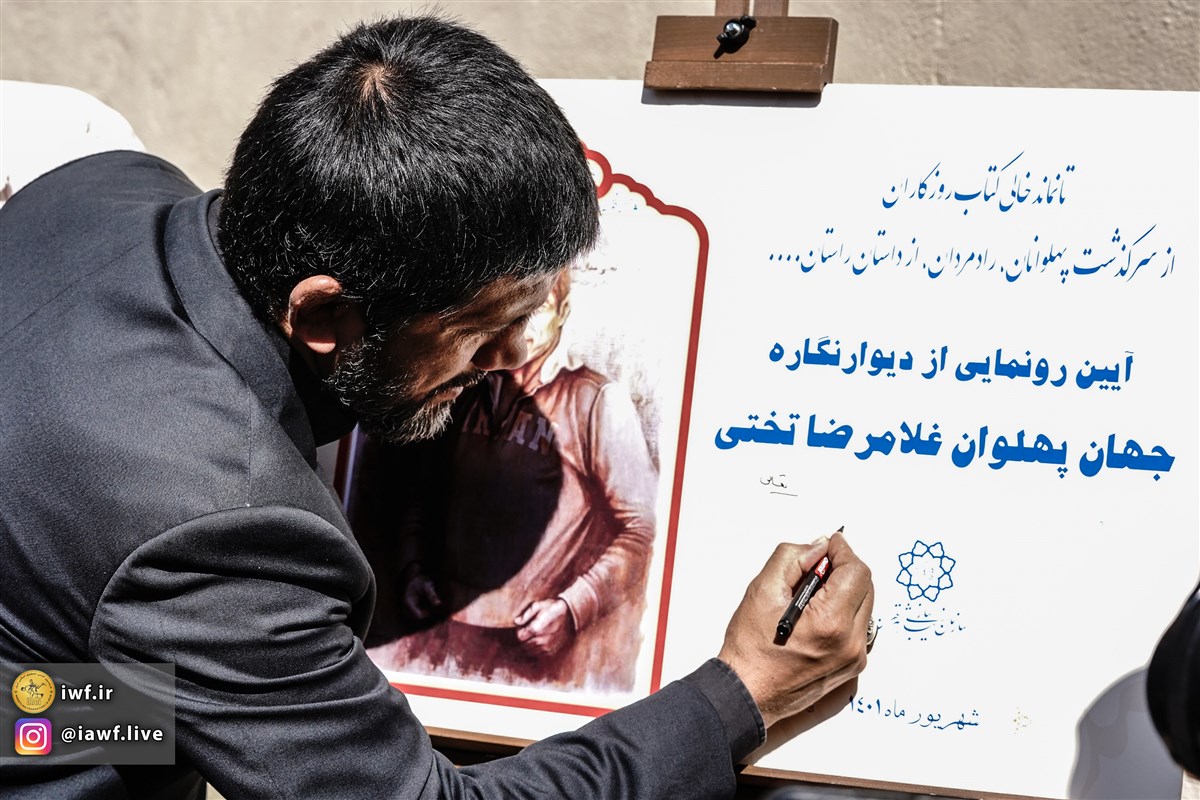 تا نماند خالی کتاب روزگاران
از سرگذشت پهلوانان، رادمردان، از داستان راستان....
آیین رونمایی از دیوارنگاره
جهان پهلوان غلامرضا تختی
شهریور ماه ۱۴۰۱
iwf.ir
@iawf.live